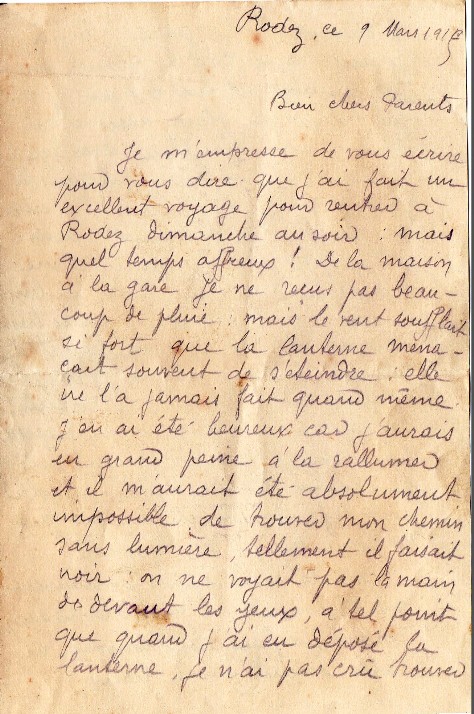 Rodez, ce 9 Mars 1915
Bien chers Parents
Je m'empresse de vous écrire
pour vous dire que j'ai fait un
excellent voyage pour rentrer à
Rodez dimanche au soir : mais
quel temps affreux ! De la maison
à la gare je ne reçus pas beau-
coup de pluie : mais le vent soufflait
si fort que la lanterne mena-
çait souvent de s'éteindre : elle
ne l'a jamais fait quand même
J'en ai été heureux car j'aurais
eu grand peine à la rallumer
et il m'aurait été absolument
impossible de trouver mon chemin
sans lumière, tellement il faisait
noir : on ne voyait pas la main
de devant les yeux, à tel point
que quand j'ai eu déposé la
lanterne, je n'ai pas crû trouver